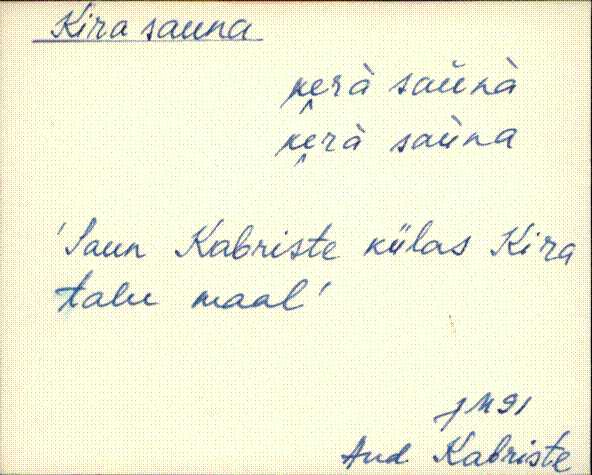 Kira sauna
ke̬rà saùnà
ke̬rà saùna
'Saun Kabriste külas Kira
talu maal'
JM91
Aud Kabriste